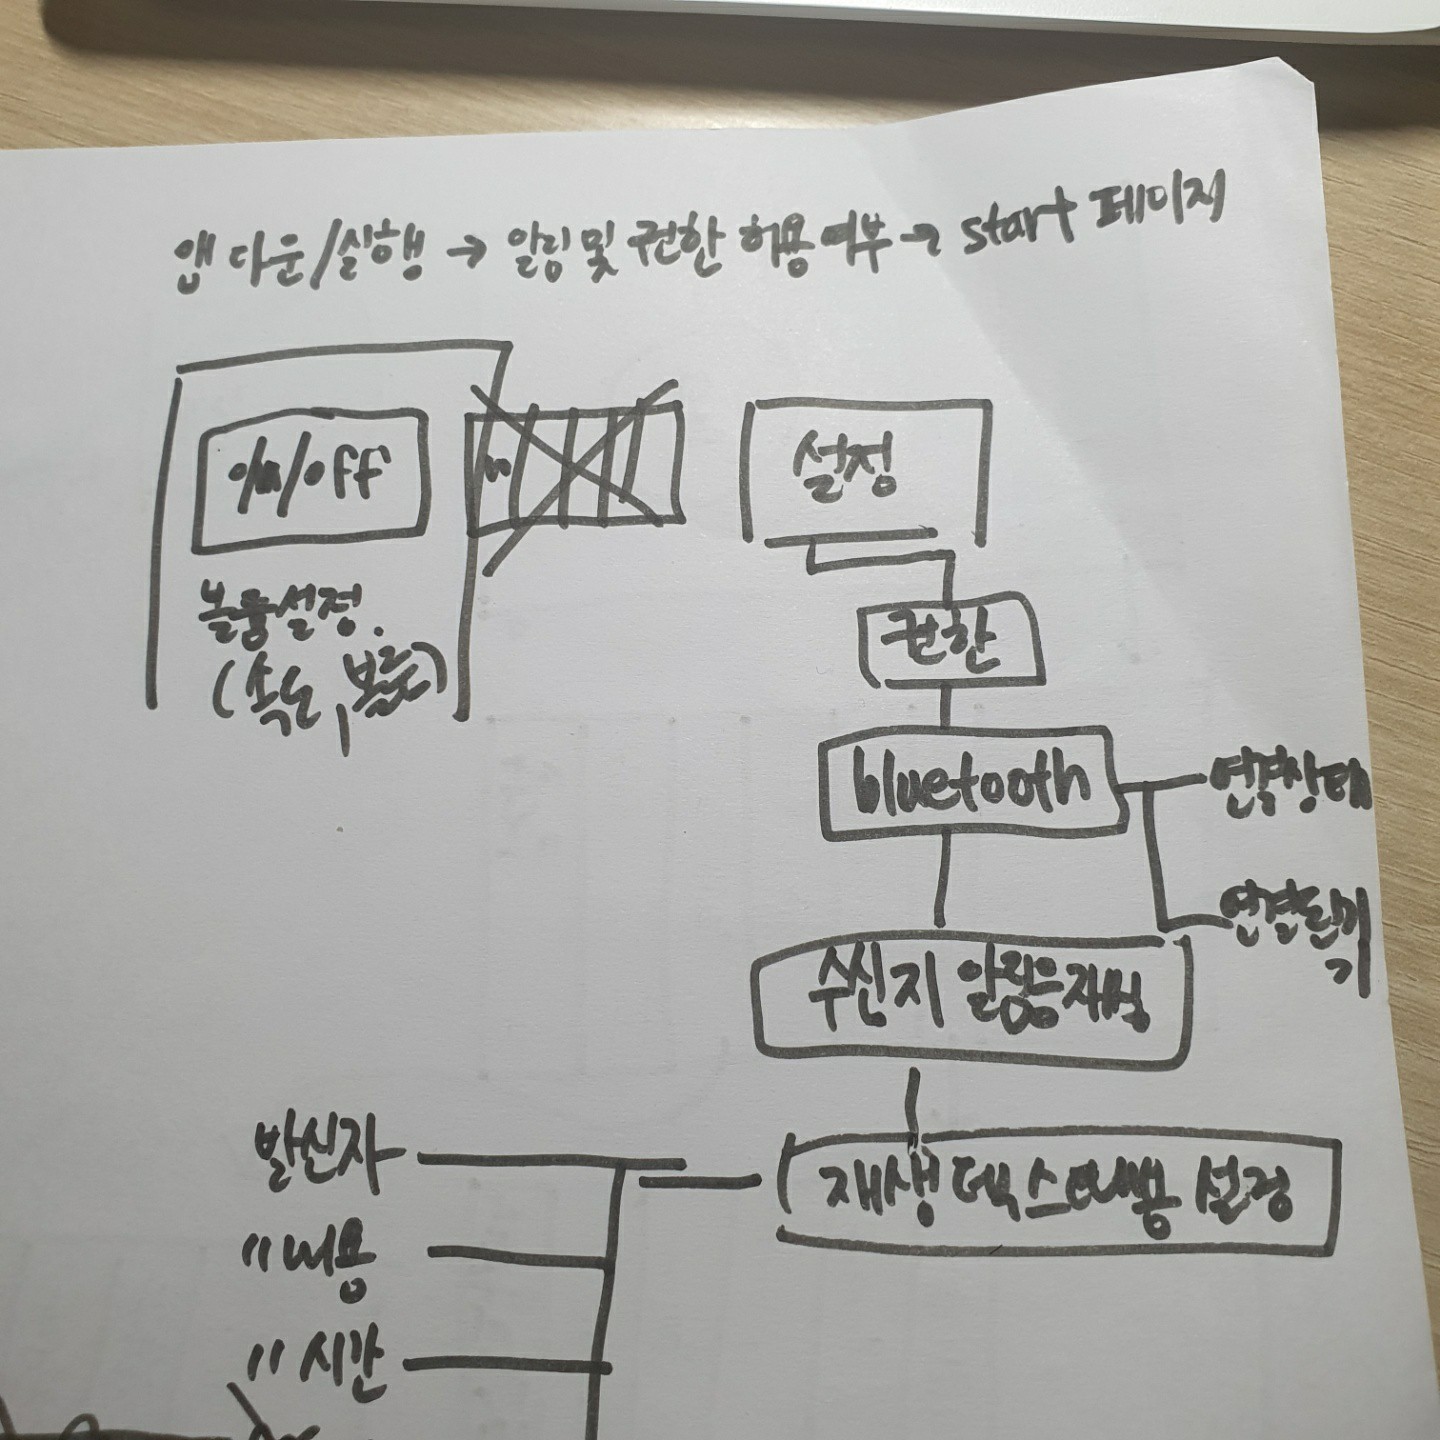 앱 다운/실행 → 알림 및 권한 허용 여부 → start 페이지
on/off
설정
볼륨설정.
(속도, 볼륨)
권한
bluetooth
연결상태
연결된기기
수신지 알림음재생
발신자
재생 텍스트내용 설정
"내용
"시간